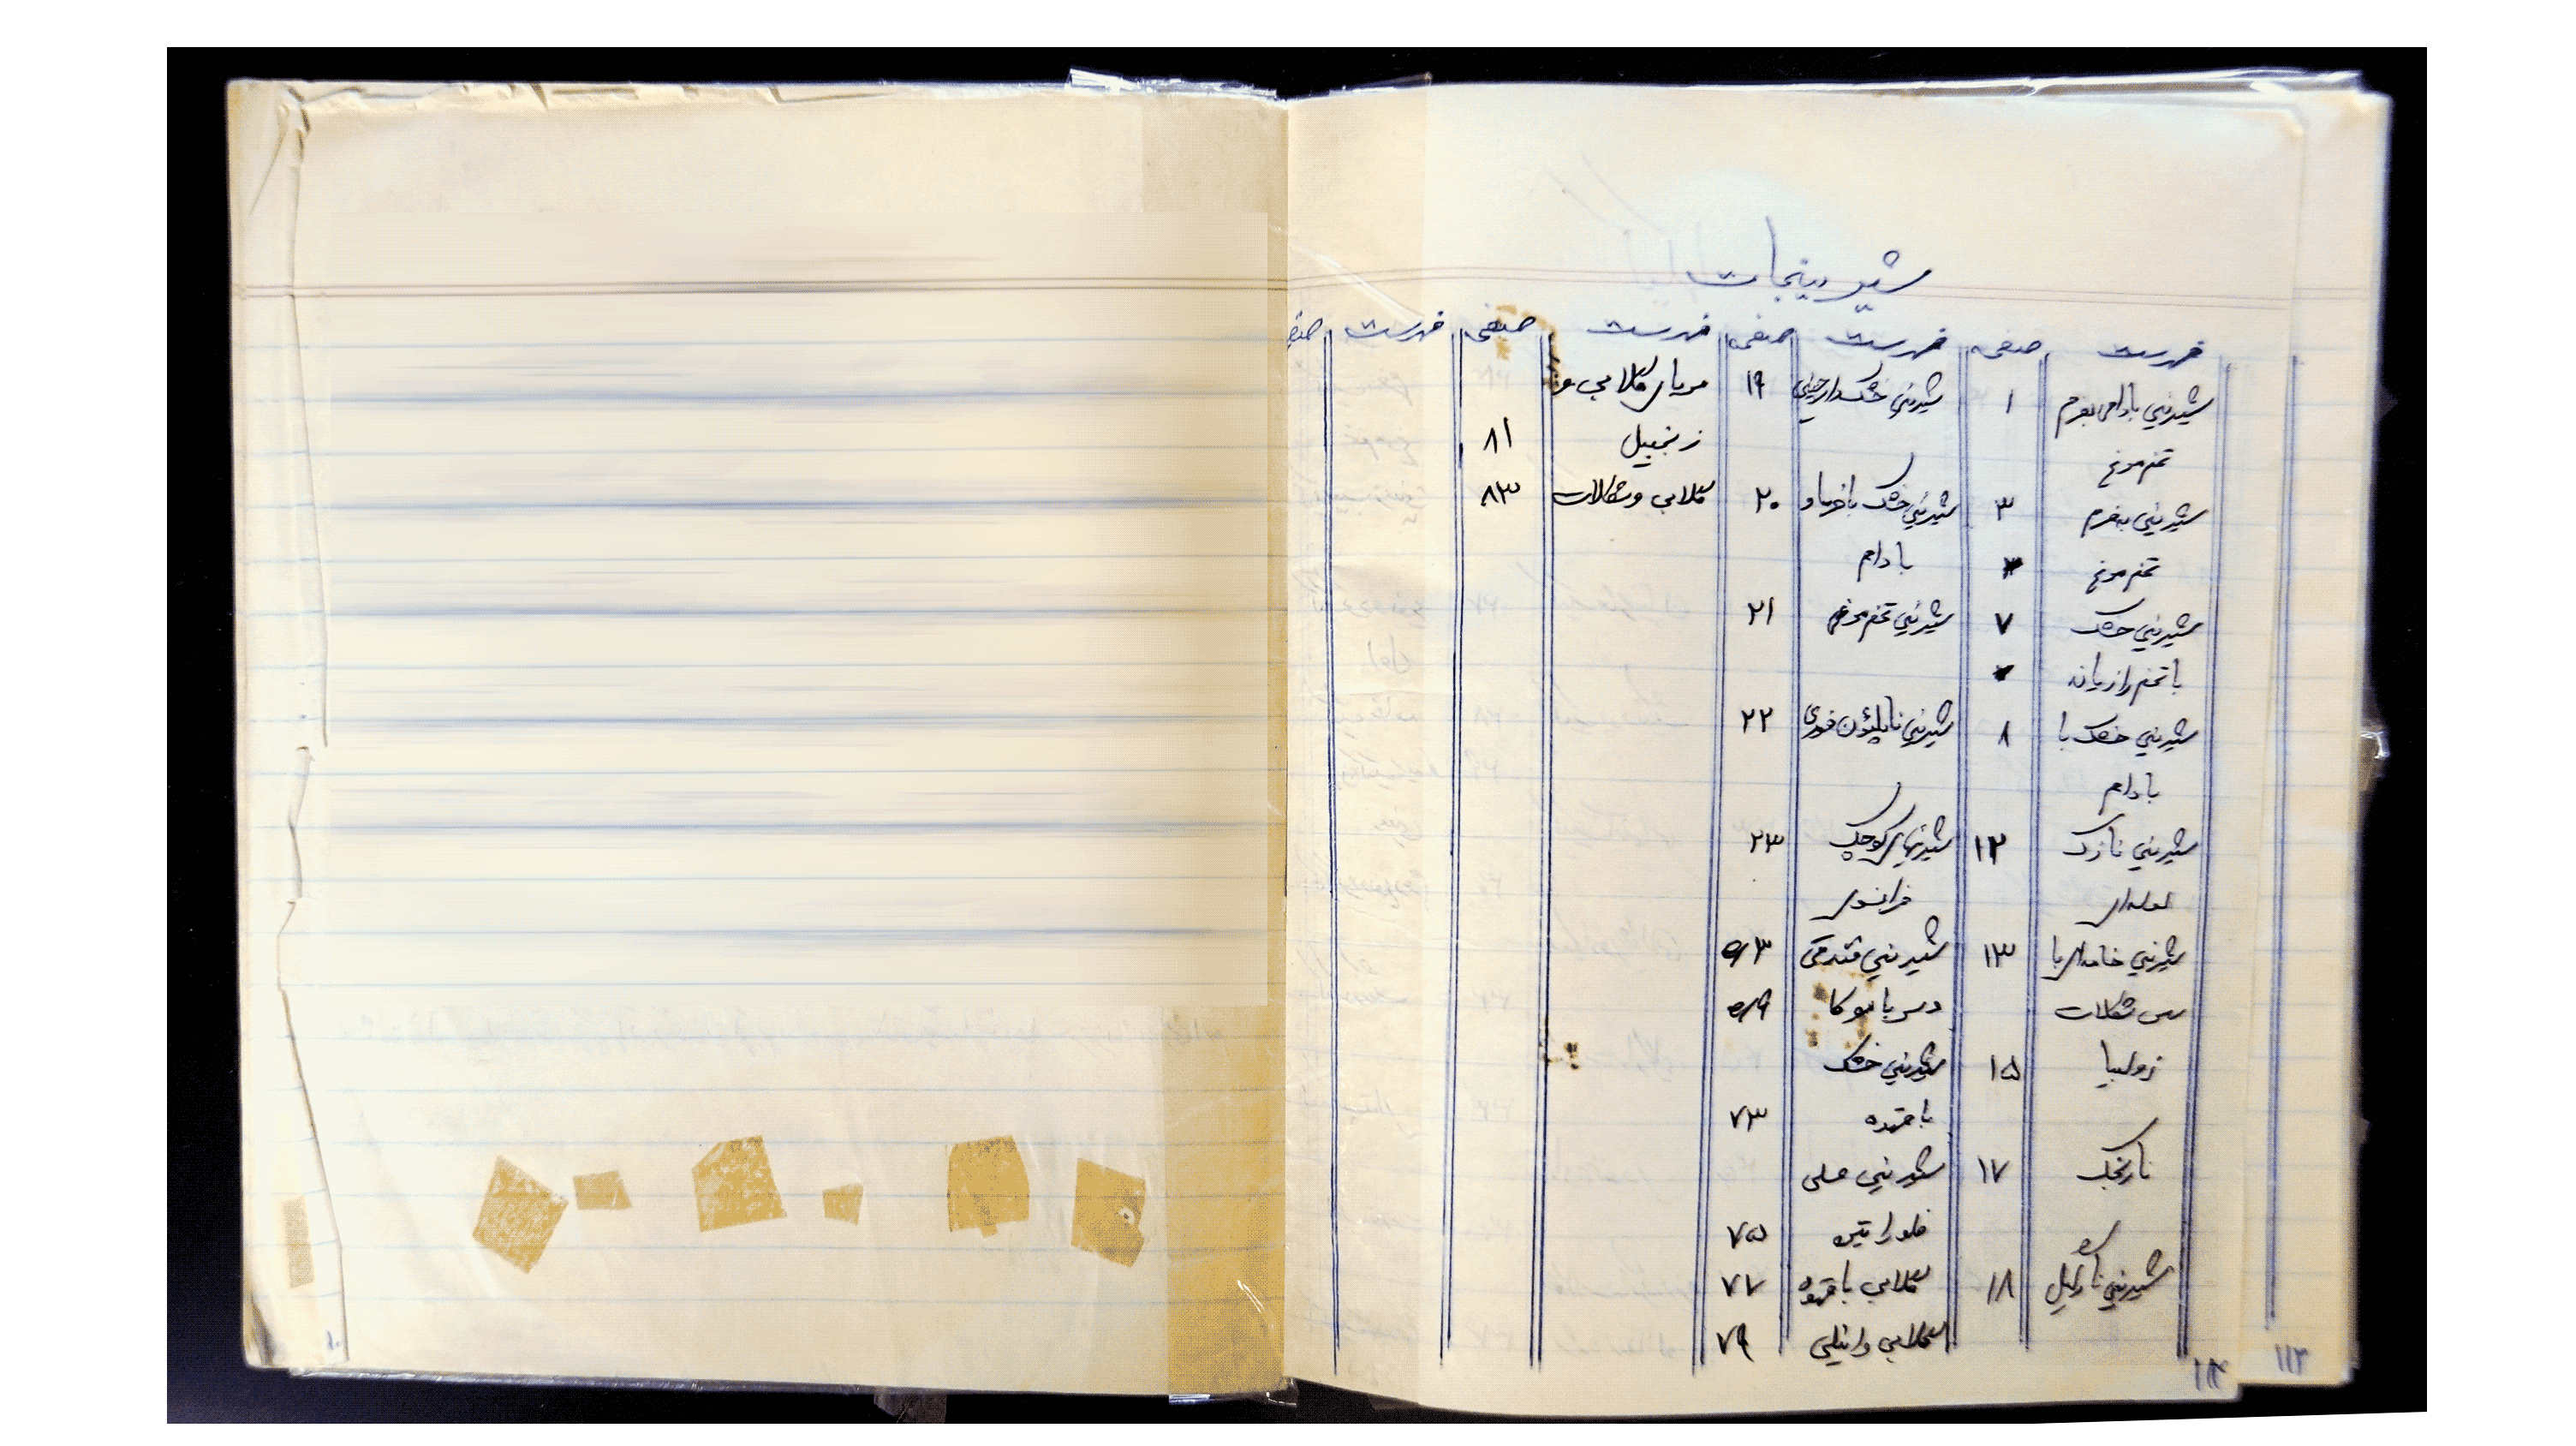 شیرینیجات
فهرست صفحه فهرست صفحه فهرست صفحه فهرست صفحه
شیرینی بادامی بفرم ۱
تخم مرغ
شیرینی بفرم ۳
تخم مرغ
شیرینی خشک ۷
با تخم رازیانه
شیرینی خشک با ۸
بادام
شیرینی نازک ۱۲
لوله‌ای
شیرینی خامه‌ای با ۱۳
سس شکلات
زولبیا ۱۵
نارنجک ۱۷
شیرینی نارگیل ۱۸
شیرینی خشک دارچینی ۱۹
شیرینی خشک با خرما و ۲۰
بادام
شیرینی تخم مرغی ۲۱
شیرینی ناپلئون فوری ۲۲
شیرینیهای کوچک ۲۳
فرانسوی
شیرینی فندقی
دسر با موکا
شیرینی خشک
با قهوه ۷۳
شیرینی عسلی
فلورانتین ۷۵
گلابی با قهوه ۷۷
گلابی وانیلی ۷۹
مربای گلابی و
زنجبیل ۸۱
گلابی و شکلات ۸۳
۱۱۴
۱۱۳